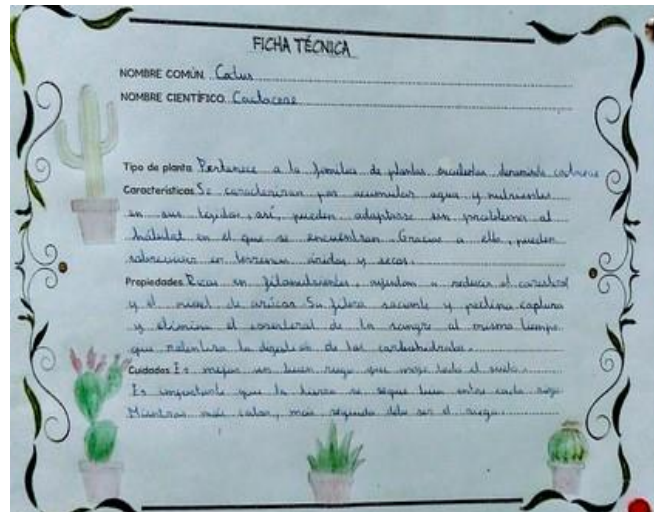 FICHA TÉCNICA
NOMBRE COMÚN Cactus
NOMBRE CIENTÍFICO Cactaceae
Tipo de planta Pertenece a la familia de plantas suculentas denominada cactáceas
Características Se caracterizan por acumular agua y nutrientes
en sus tejidos, así, pueden adaptarse sin problema al
hábitat en el que se encuentran. Gracias a ello, pueden
sobrevivir en terrenos áridos y secos.
Propiedades Ricas en fitonutrientes, ayudan a reducir el colesterol
y el nivel de azúcar. Su fibra saciante y pectina captura
y elimina el colesterol de la sangre al mismo tiempo
que ralentiza la digestión de los carbohidratos.
Cuidados Es mejor un buen riego que moje todo el suelo.
Es importante que la tierra se seque bien entre cada riego.
Mientras más calor, más seguido debe ser el riego.